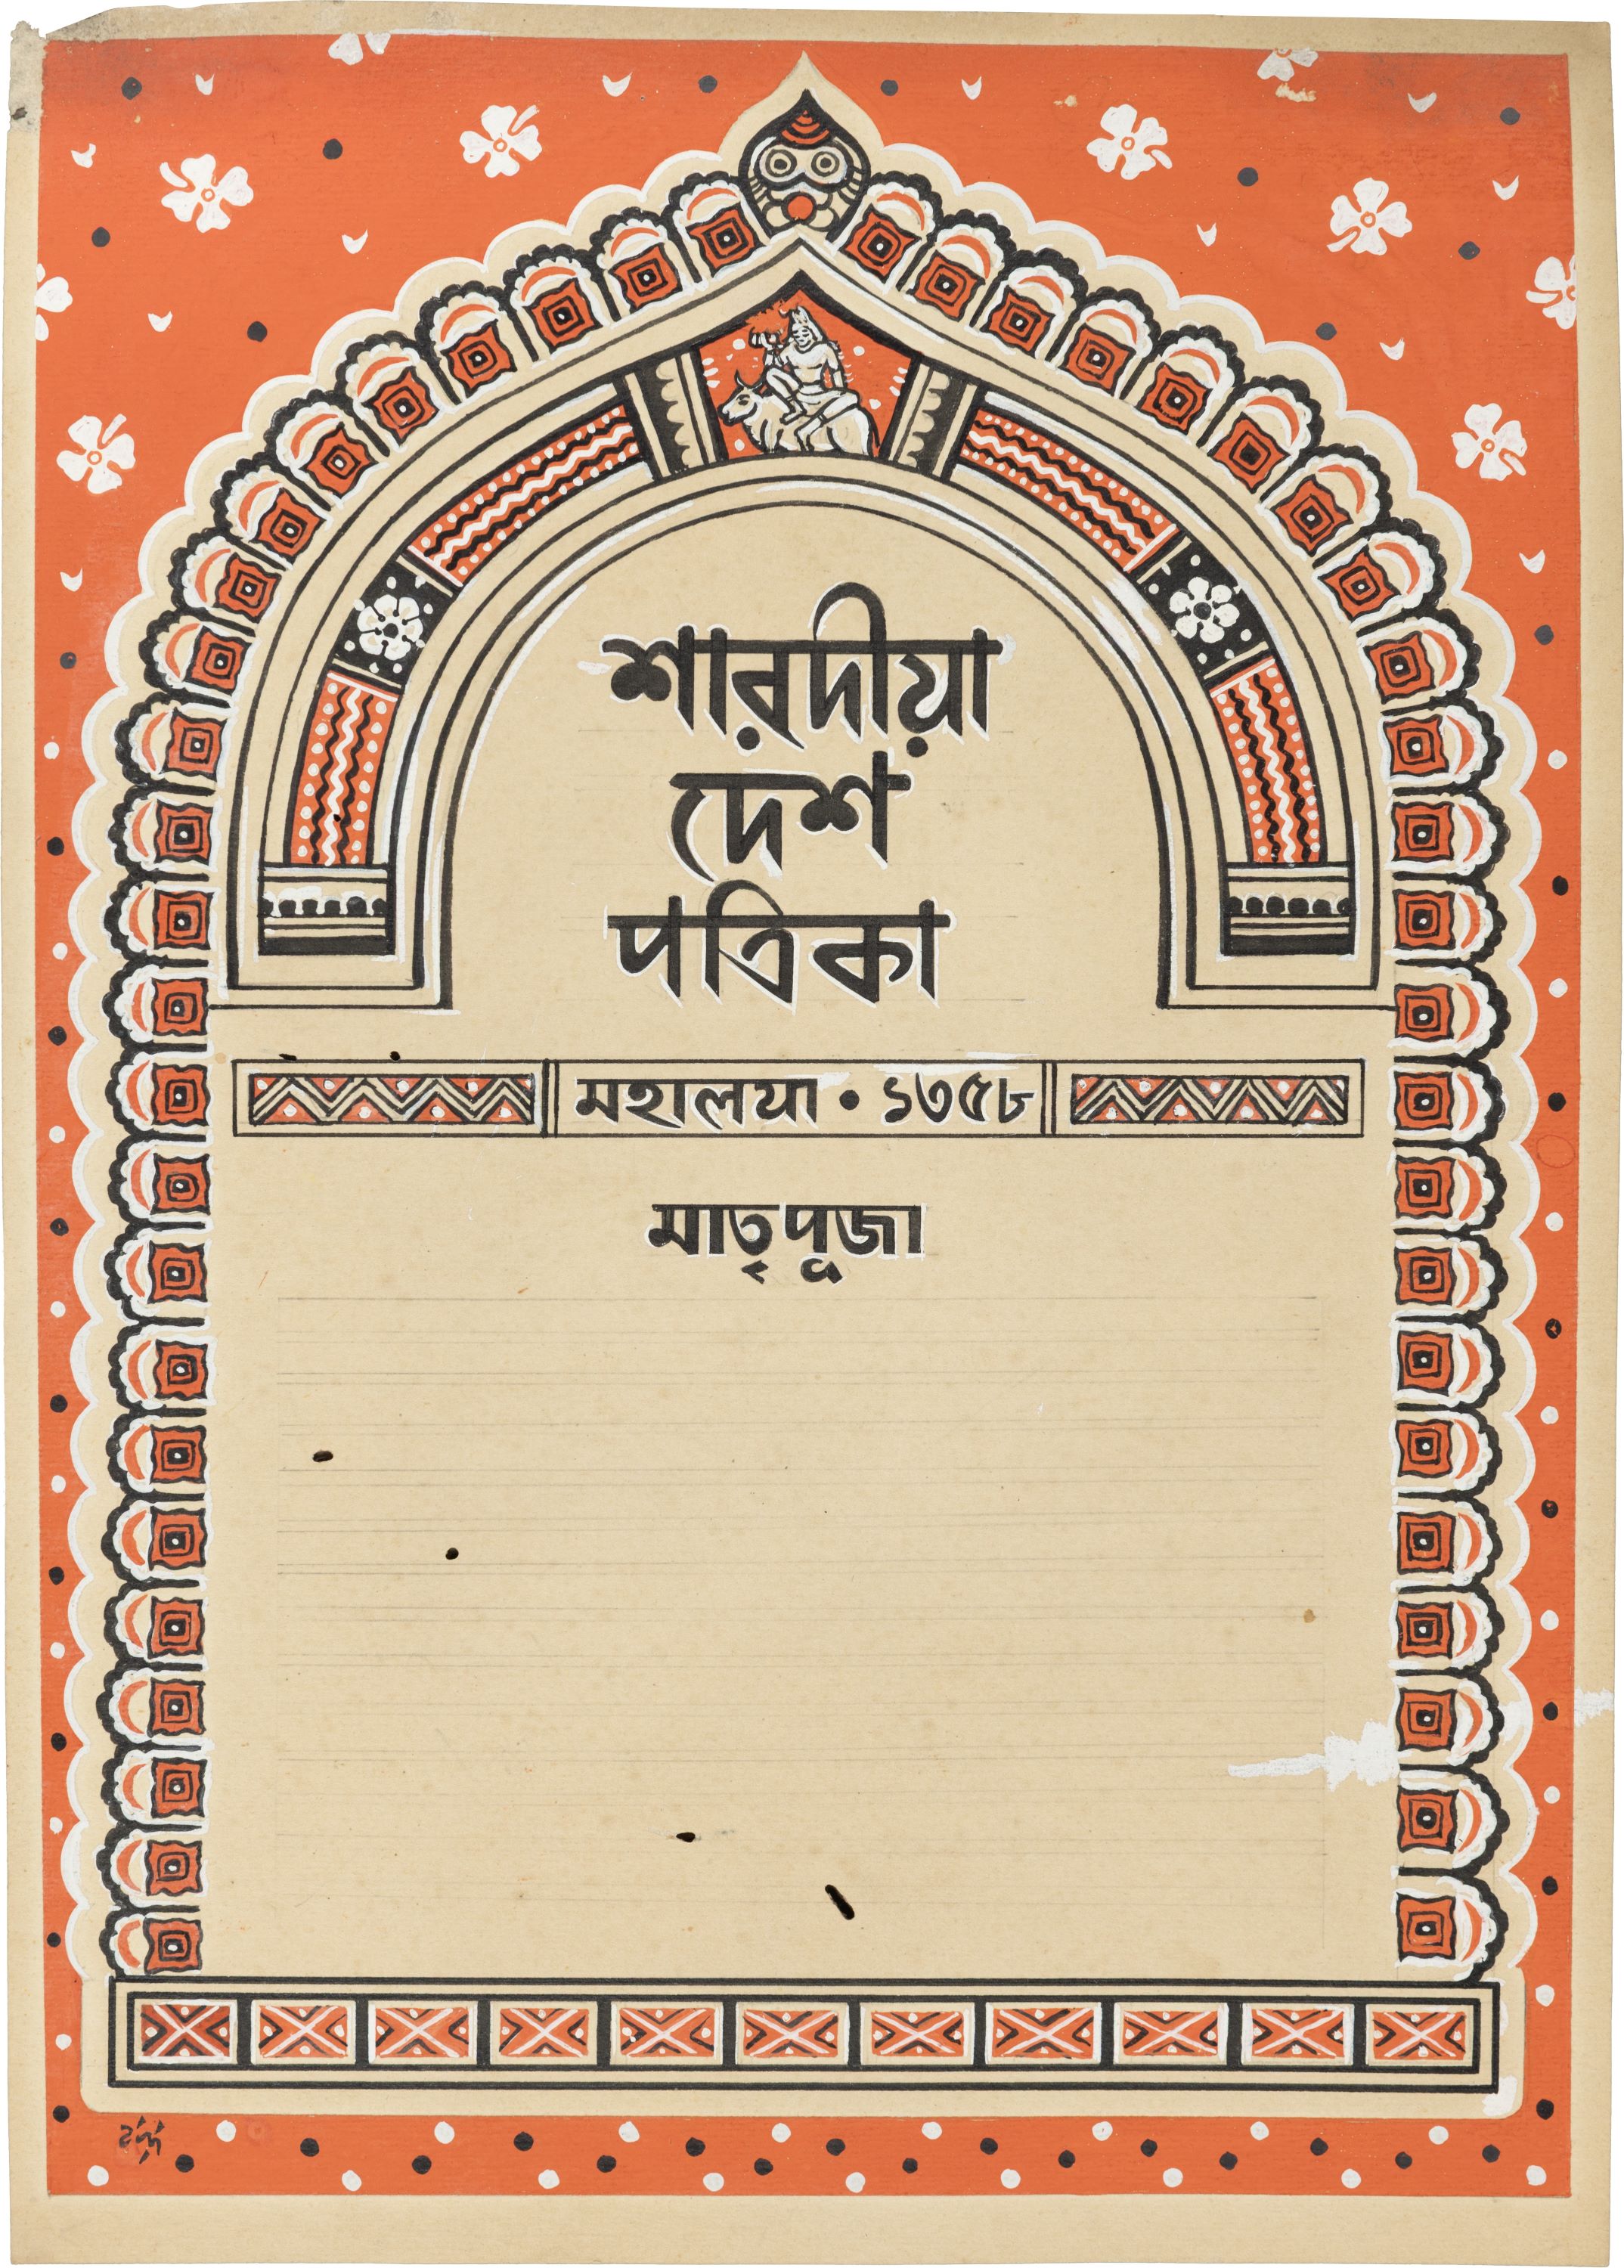 শারদীয়া
দেশ
পত্রিকা
মহালয়া • ১৩৫৮
মাতৃপূজা